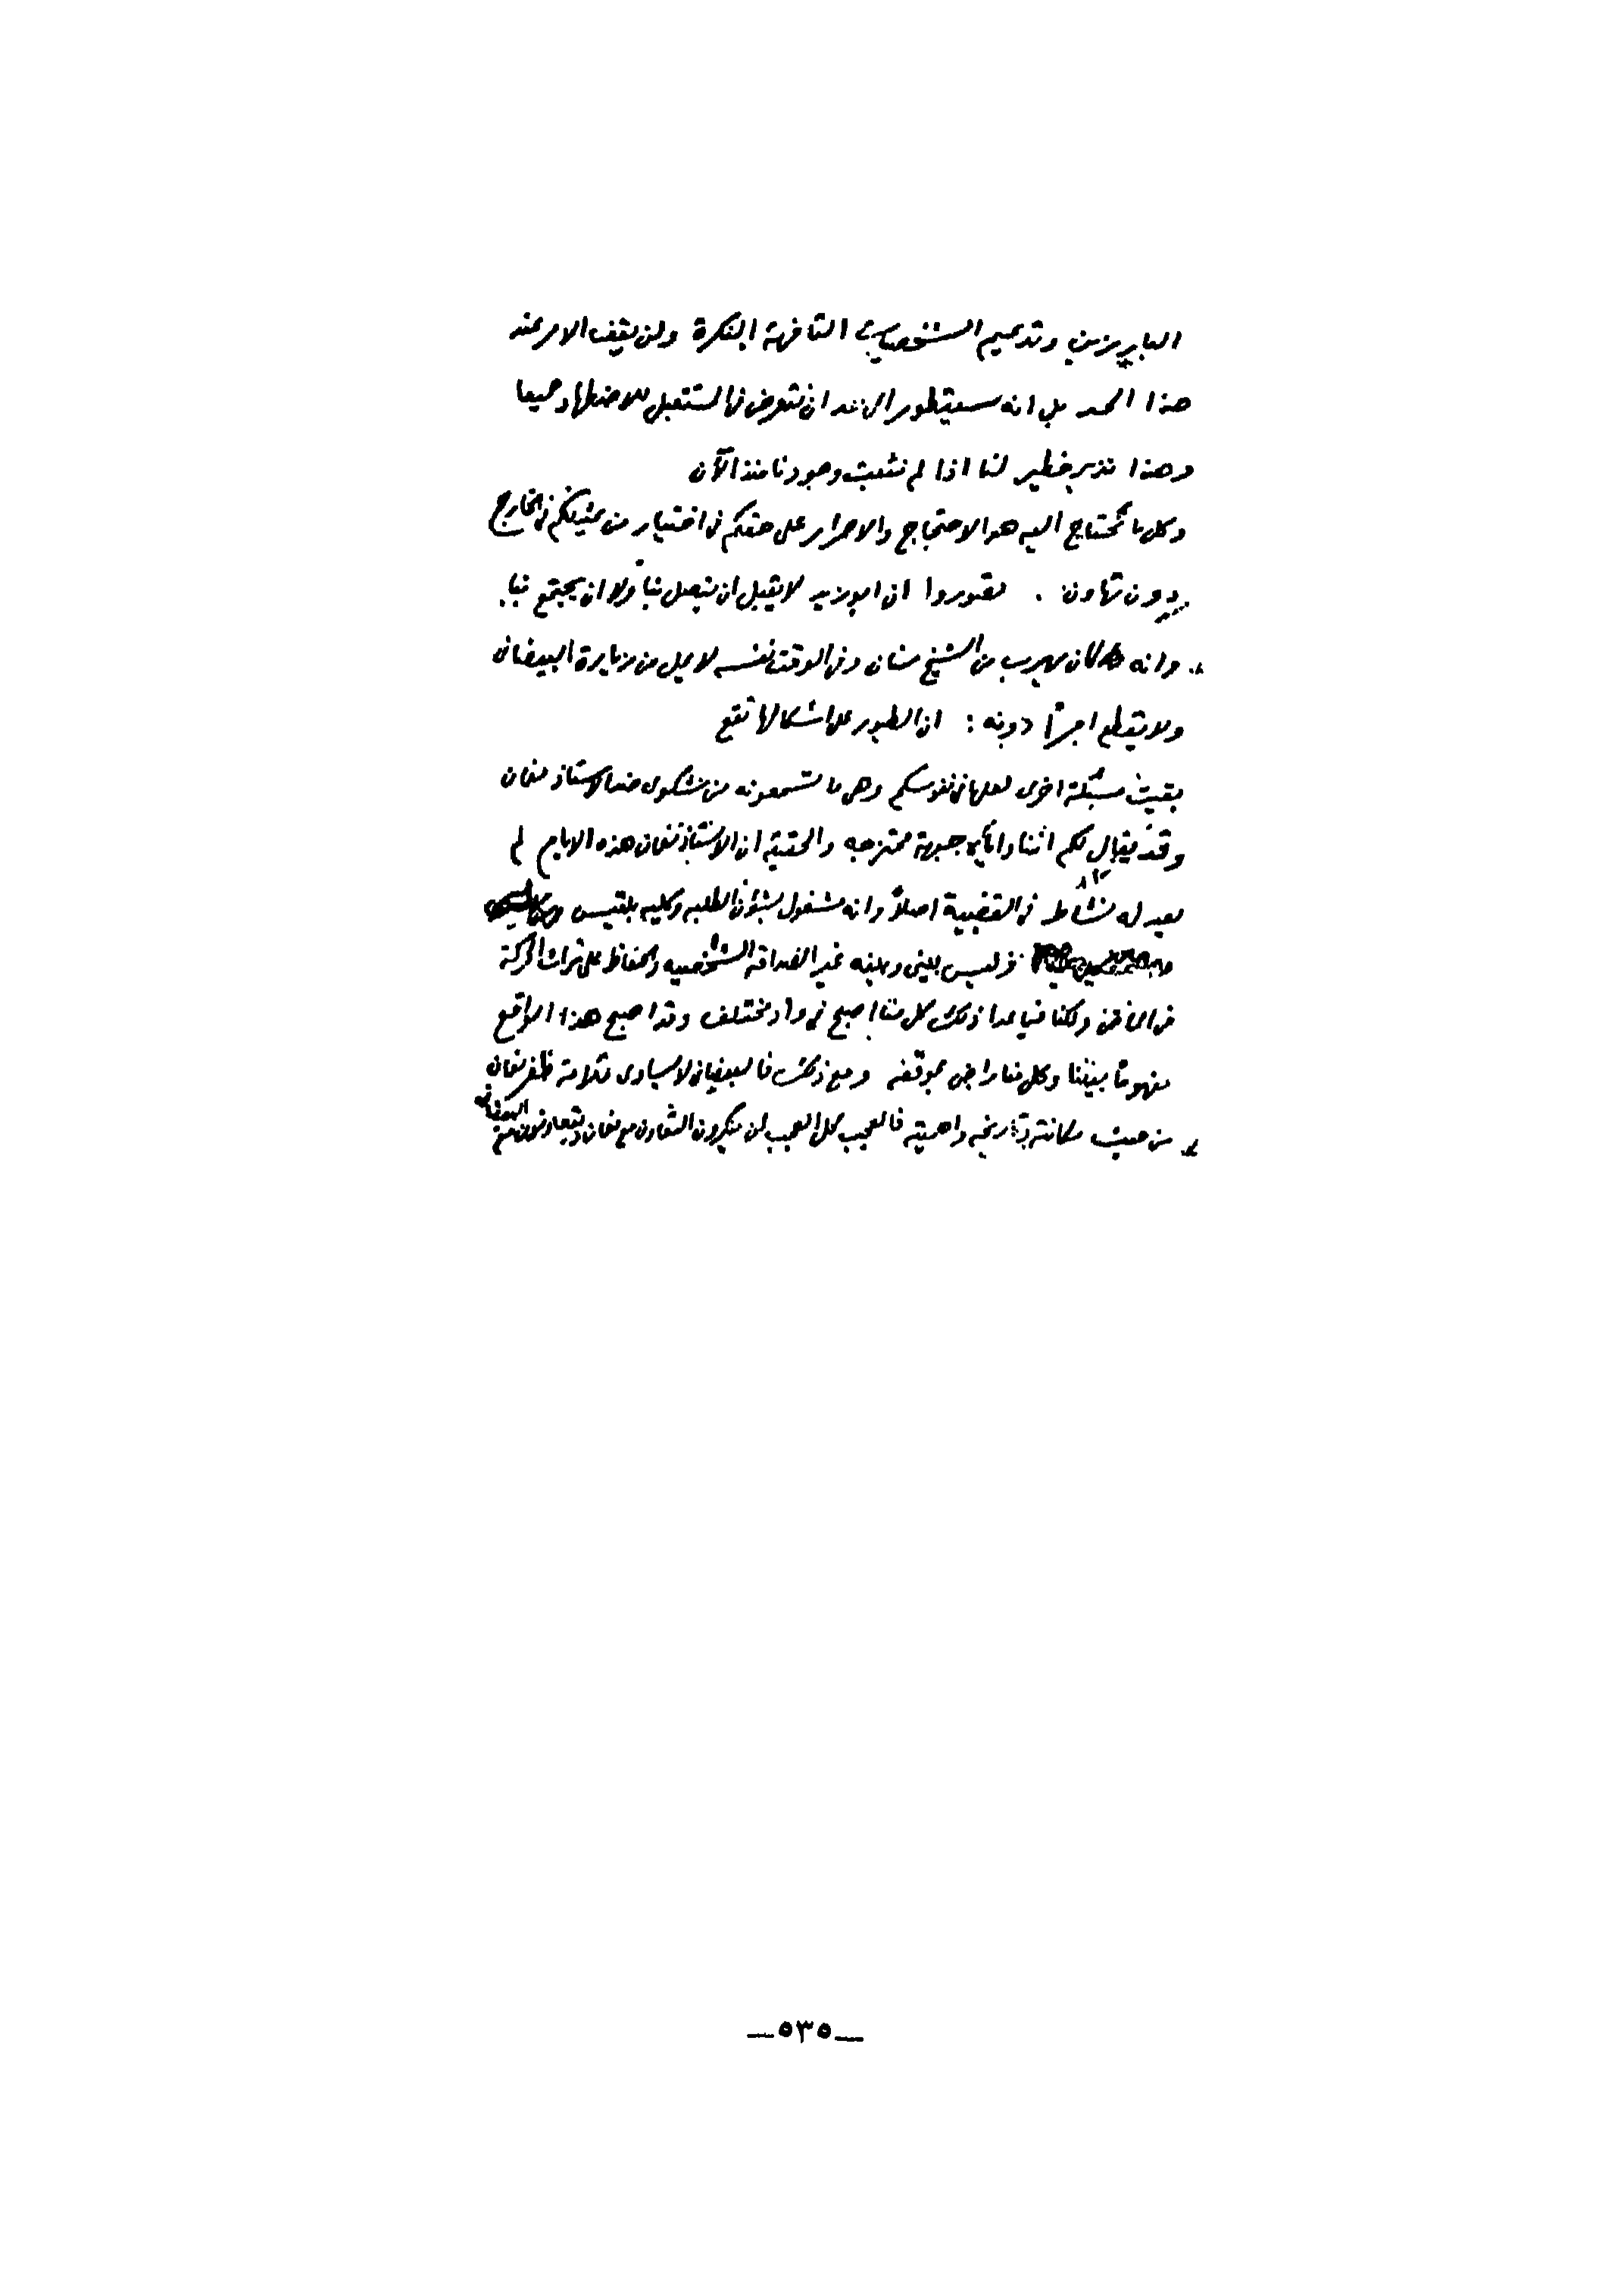 البارزين وتدعيم الشخصيات التافهة النكرة ولن يقف الامر عند
هذا الحد بل انه سيتطور الى حد ان نتعرض في المستقبل للاضطهاد جميعا
وهذا نذير خطير لنا اذا لم نثبت وجودنا منذ الآن
وكل ما نحتاج اليه هو الاحتجاج والاصرار على حقكم في اختيار من يمثلكم في الخارج
بدون تهاون . تصوروا ان ابو زيد لا يقبل ان يتصل بنا ولا ان يجتمع بنا.
وانه كان يهرب من الشيخ سنان وفي الوقت نفسه لا يمل من زيارة البيضاني
ولا يقطع امراً دونه : ان الطيور على اشكالها تقع
بقيت مسئلة اخرى لعلها في نفوسكم وهي ما تسمعونه من شكوى ضد الاستاذ نعمان
وقد يقال لكم اننا واياه جبهة ممتزجه والحقيقة ان الاستاذ نعمان هذه الايام لم
يعد له نشاط في القضية اصلاً وانه مشغول بشئون الطلبه وكليه بلقيس
فليس بيني وبينه غير الصداقة الشخصيه والحفاظ على تراث الحركة
في الماضي ولكنا فيما عدا ذلك كل منا اصبح في واد مختلف وقد اصبح هذا الواقع
مفهوماً بيننا وكل منا راض بموقفه ومع ذلك فالبيضاني لا يساوى قلامة ظفر نعمان
من حيث مكانته وتاريخه واهميته فالعجب كل العجب لمن ينكرون التعاون مع نعمان ويتعاونون مع البيضاني
—٥٣٥—